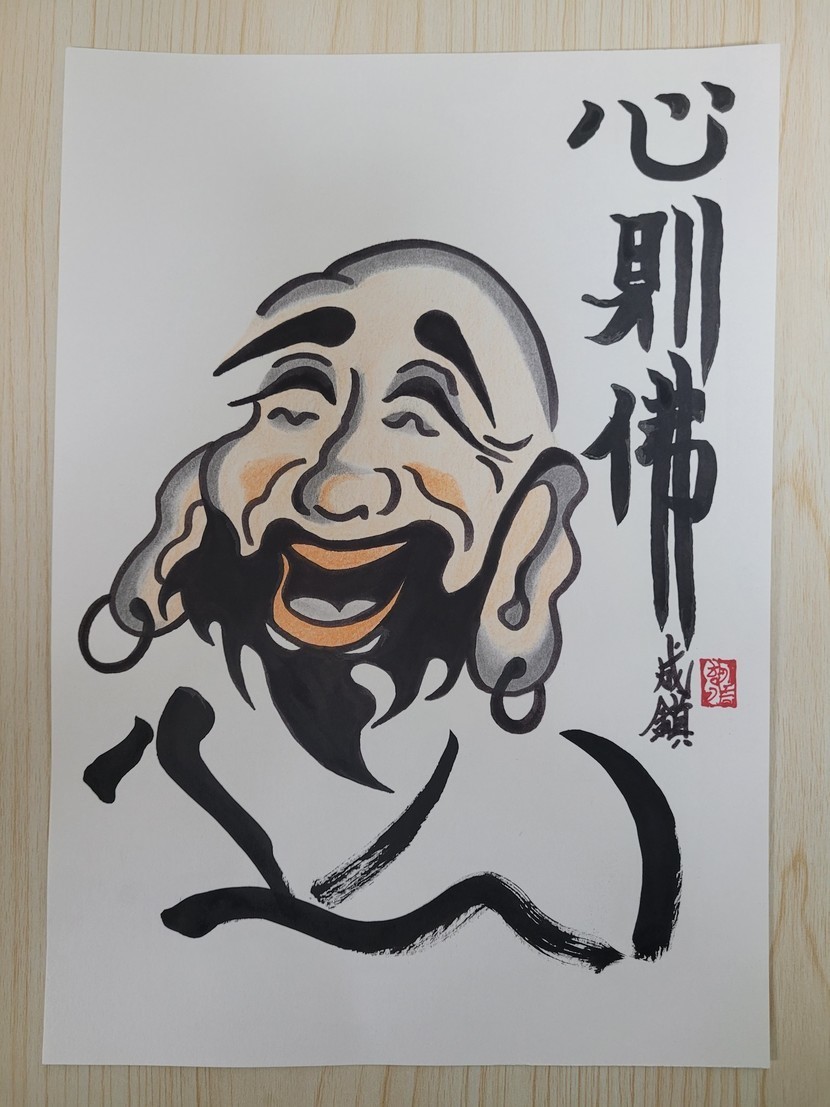 心則佛
成鎮